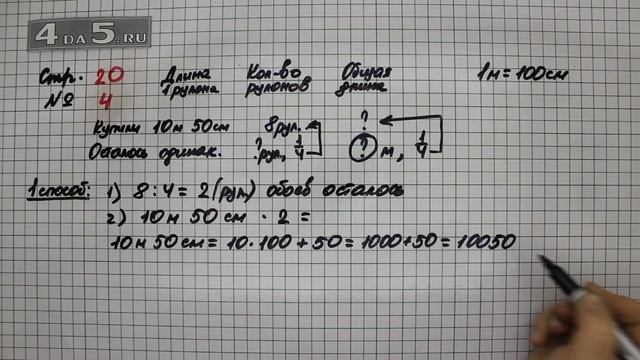 4DA5.RU
Стр. 20 Длина Кол-во Общая 1м = 100см
№ 4 1 рулона рулонов длина
Купили 10м 50см 8рул. ?
Осталось одинак. ? рул, 1/4 ? м, 1/4
1 способ: 1) 8 : 4 = 2 (рул) обоев осталось
2) 10м 50 см · 2 =
10м 50 см = 10 · 100 + 50 = 1000 + 50 = 10050